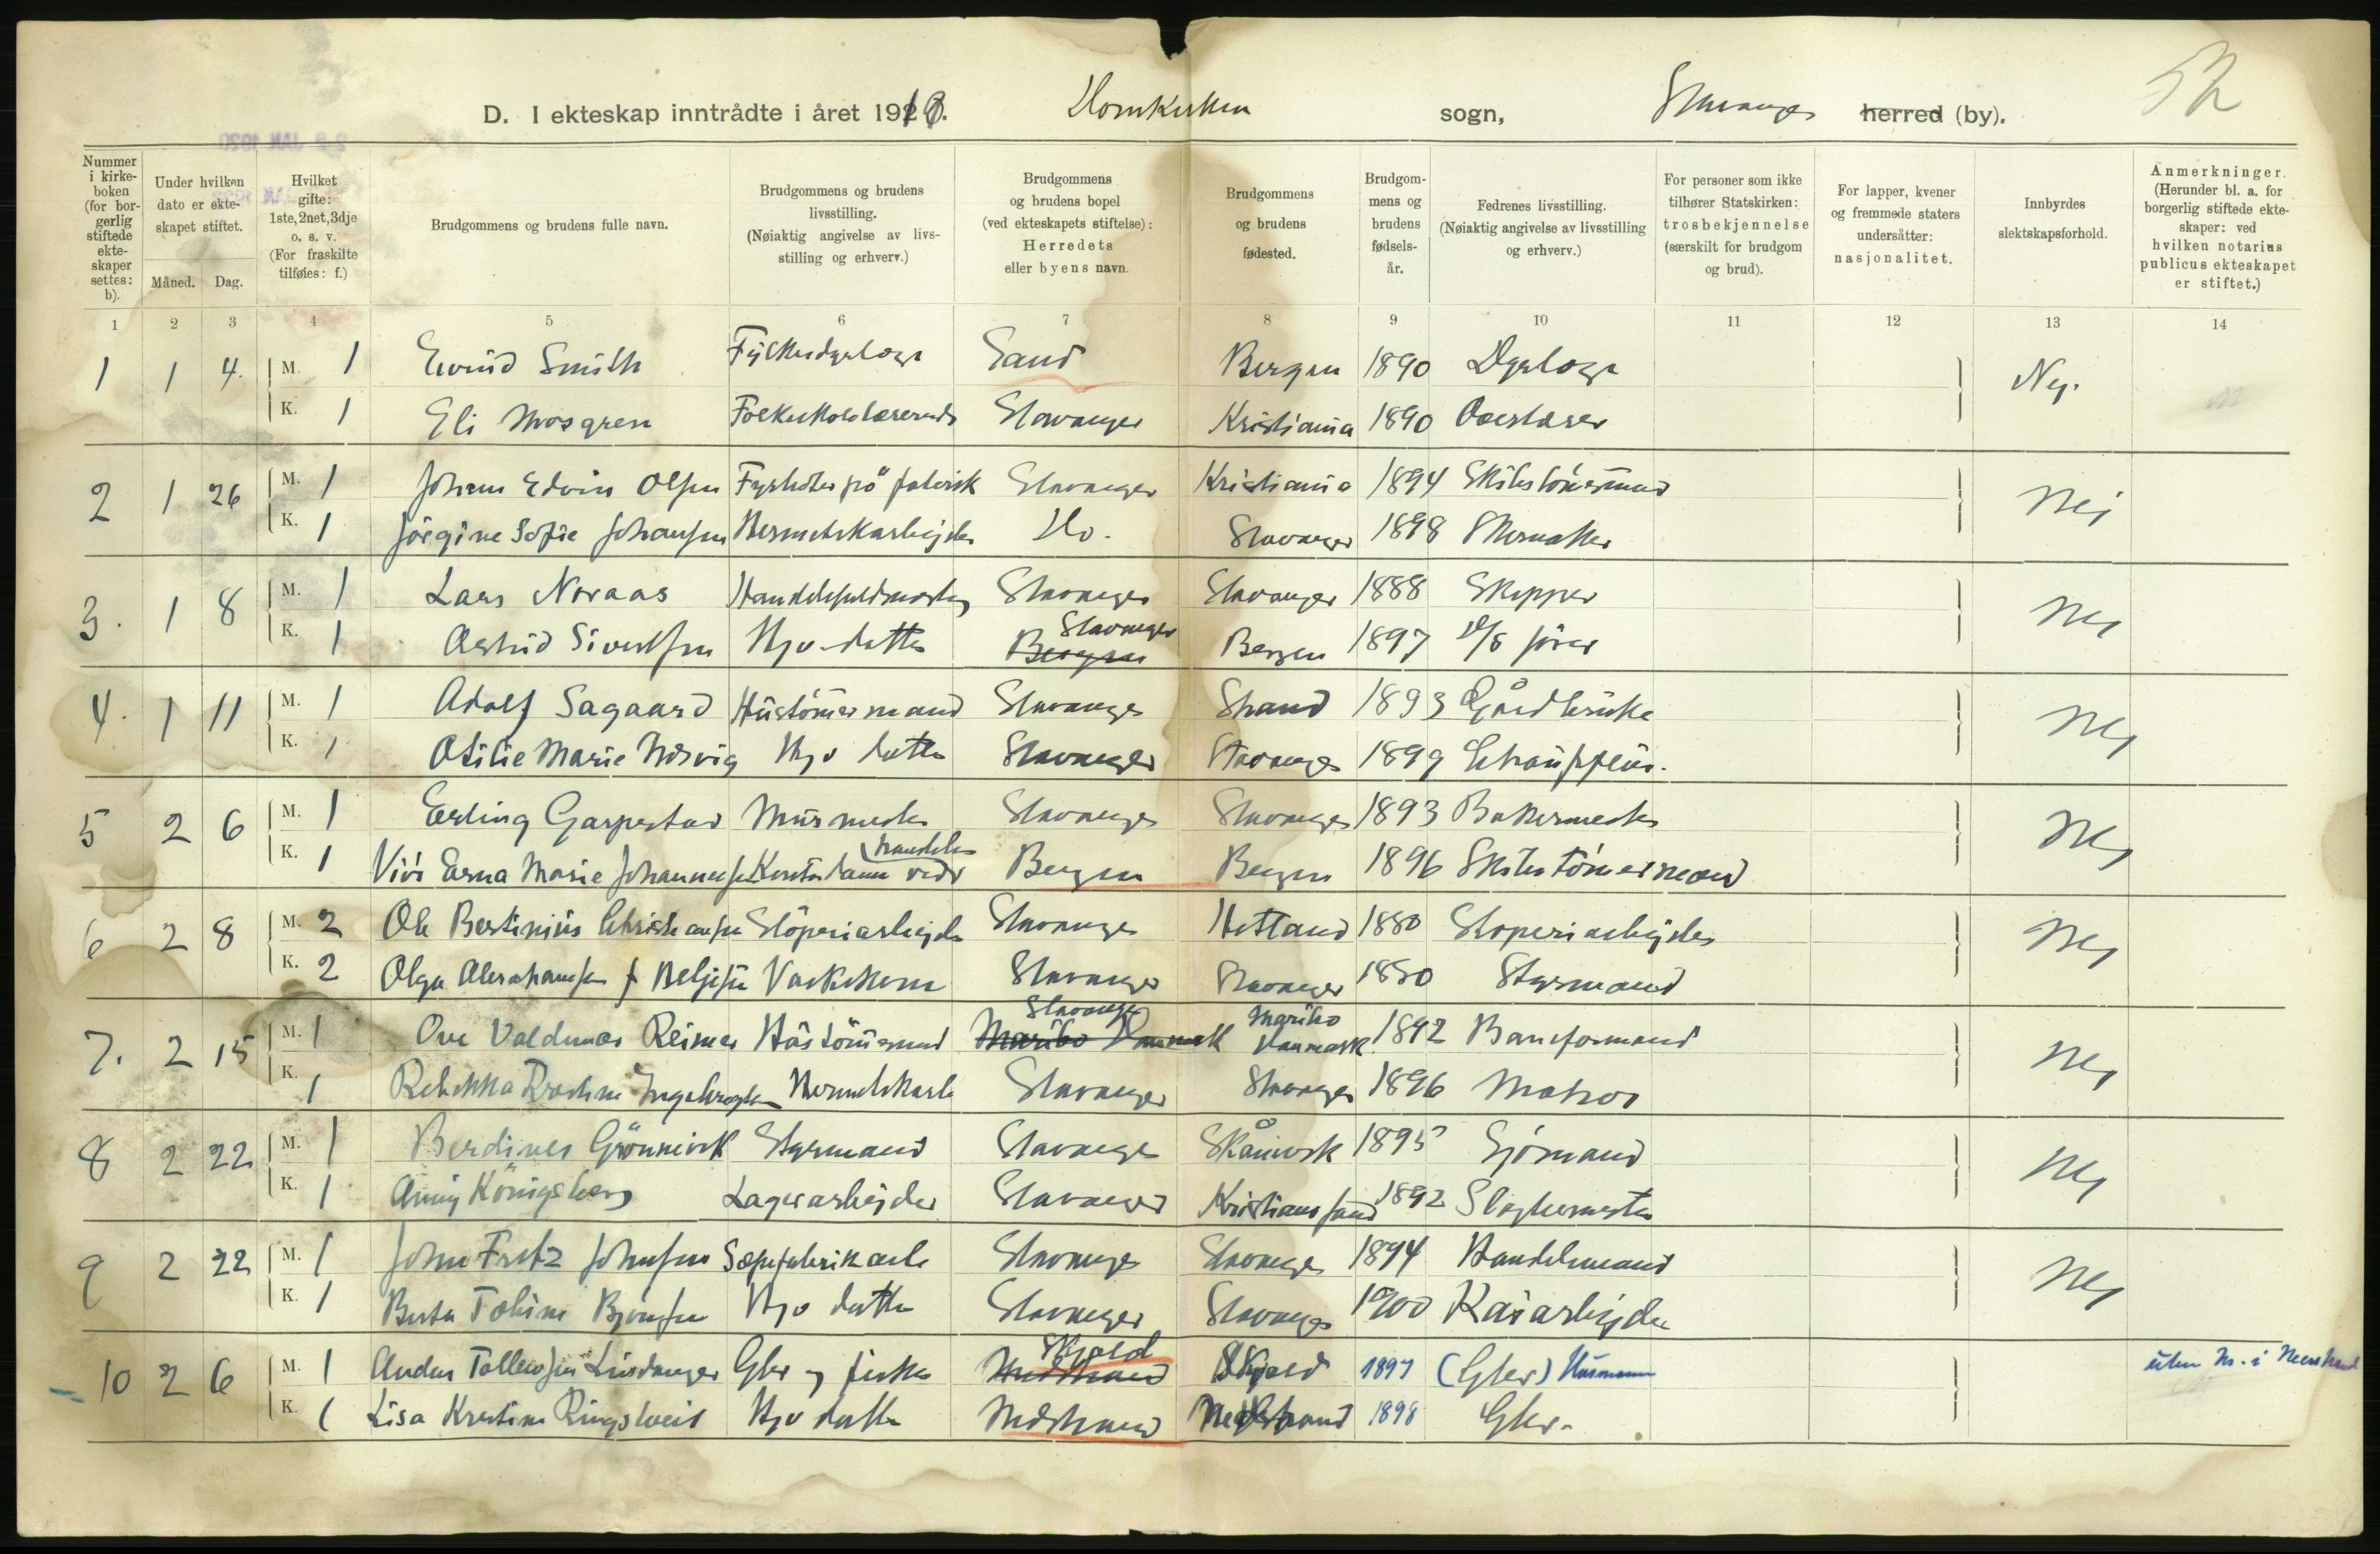 D. I ekteskap inntrådte i året 1918. Domkirken sogn, Stavanger herred (by). 52
Nummer i kirkeboken (for borgerlig stiftede ekteskaper settes: b).
Under hvilken dato er ekteskapet stiftet.
Måned. Dag.
Hvilket gifte: 1ste, 2net, 3dje o. s. v. (For fraskilte tilføies: f.)
Brudgommens og brudens fulle navn.
Brudgommens og brudens livsstilling. (Nøiaktig angivelse av livsstilling og erhverv.)
Brudgommens og brudens bopel (ved ekteskapets stiftelse): Herredets eller byens navn.
Brudgommens og brudens fødested.
Brudgommens og brudens fødselsår.
Fedrenes livsstilling. (Nøiaktig angivelse av livsstilling og erhverv.)
For personer som ikke tilhører Statskirken: trosbekjennelse (særskilt for brudgom og brud).
For lapper, kvener og fremmede staters undersåtter: nasjonalitet.
Innbyrdes slektskapsforhold.
Anmerkninger. (Herunder bl. a. for borgerlig stiftede ekteskaper: ved hvilken notarius publicus ekteskapet er stiftet.)
1 2 3 4 5 6 7 8 9 10 11 12 13 14
1 1 4. M. 1 Eivind Smith Fylkesdyrlæge Sand Bergen 1890 Dyrlæge Nej.
K. 1 Eli Mosgren Folkeskolelærerinde Stavanger Kristiania 1890 Overlærer
2 1 26 M. 1 Johan Edvin Olsen Fyrbøter på fabrik Stavanger Kristiania 1894 Skibstømmermand Nei
K. 1 Jørgine Sofie Johansen Hermetikarbejder Do. Stavanger 1898 Skomaker
3. 1 8 M. 1 Lars Noraas Stavanger Stavanger 1888 Skipper Nej
K. 1 Astrid Sivertsen Hjv. datter Bergen Stavanger Bergen 1897 D/S fører
4. 1 11 M. 1 Adolf Sagaard Hustømmermand Stavanger Strand 1893 Gårdbruker Nej
K. 1 Otilie Marie Norvig Hjv datter Stavanger Stavanger 1899 Chauffeur.
5 2 6 M. 1 Erling Garpestad Murmester Stavanger Stavanger 1893 Bakermester Nej
K. 1 Vivi Erna Marie Johannessen Kontordame ved handel Bergen Bergen 1896 Skibstømmermand
6 2 8 M. 2 Ole Bertinius Christiansen Støperiarbejder Stavanger Hetland 1880 Støperiarbejder Nej
K. 2 Olga Abrahamsen f Vaskekone Stavanger Stavanger 1880 Styrmand
7. 2 15 M. 1 Ove Valdemar Reimer Hustømmermand Maribo Danmark Stavanger Maribo Danmark 1892 Baneformand Nej
K. 1 Rebekka Ingebregtsen Hermetikarb Stavanger Stavanger 1896 Matros
8 2 22 M. 1 Berdines Grønnevik Styrmand Stavanger Skånevik 1895 Sjømand Nej
K. 1 Anny Königsberg Lagerarbejder Stavanger Kristiansand 1892 Slagtermester
9 2 22 M. 1 John Fritz Johnsen Sæpefabrikarb Stavanger Stavanger 1894 Handelsmand Nej
K. 1 Berta Tobine Bjørnsen Hjv datter Stavanger Stavanger 1900 Kaiarbejder
10 2 6 M. 1 Anders Tollevsen Lindanger Gbr og fisker Nedstrand Skjold Skjold 1897 (Gbr) Husmann uten Nr. i Nedstrand
K. 1 Lisa Kristine Ringstveit Hjv datter Nedstrand Nedstrand 1898 Gbr.